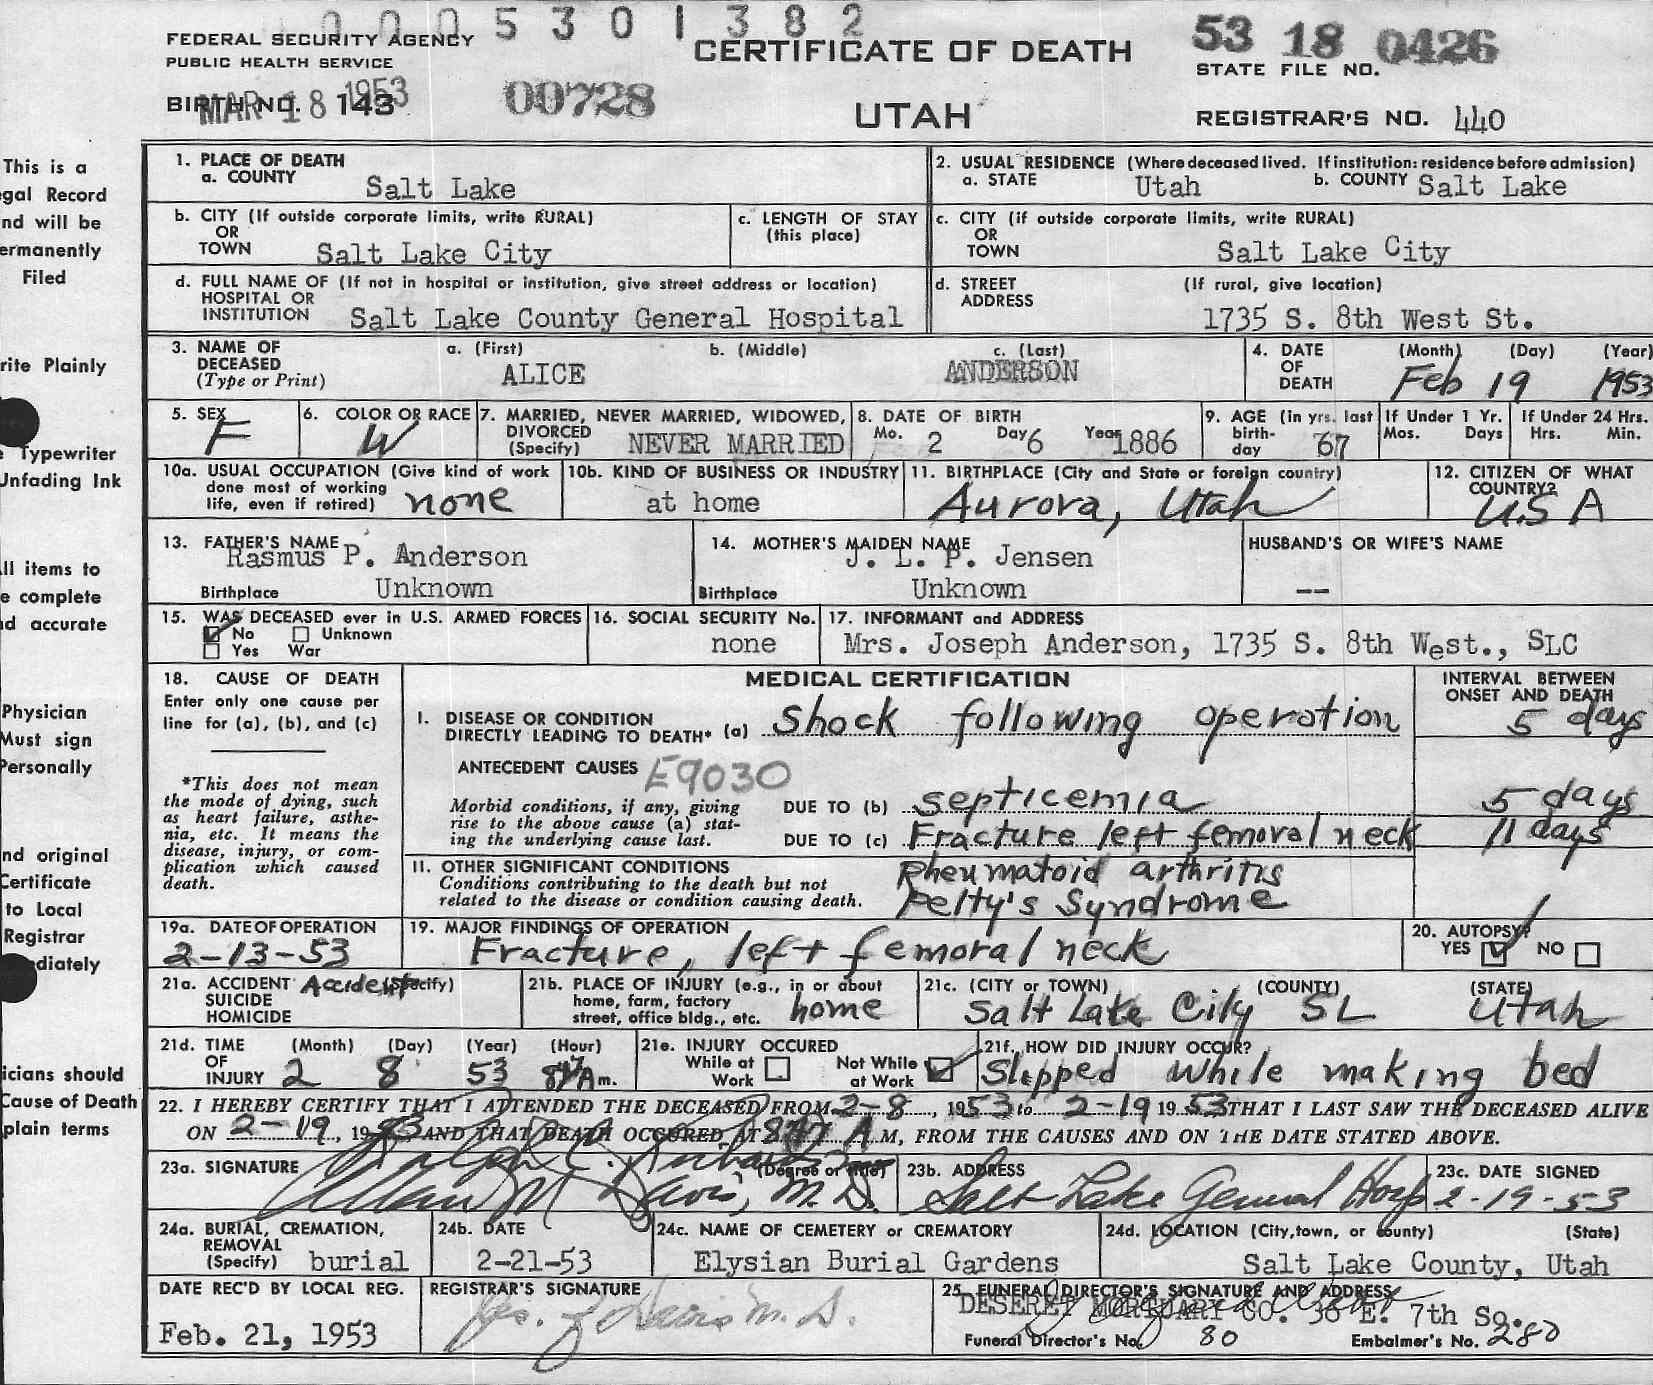 0005301382
FEDERAL SECURITY AGENCY
PUBLIC HEALTH SERVICE
BIRTH NO. 143
MAR 18 1953
00728
CERTIFICATE OF DEATH
UTAH
53 18 0426
STATE FILE NO.
REGISTRAR'S NO. 440
This is a
egal Record
nd will be
ermanently
Filed
rite Plainly
e Typewriter
Unfading Ink
ll items to
e complete
nd accurate
Physician
Must sign
Personally
nd original
Certificate
to Local
Registrar
ediately
icians should
Cause of Death
plain terms
1. PLACE OF DEATH
a. COUNTY Salt Lake
2. USUAL RESIDENCE (Where deceased lived. If institution: residence before admission)
a. STATE Utah b. COUNTY Salt Lake
b. CITY (If outside corporate limits, write RURAL)
OR
TOWN Salt Lake City
c. LENGTH OF STAY
(this place)
c. CITY (if outside corporate limits, write RURAL)
OR
TOWN Salt Lake City
d. FULL NAME OF (If not in hospital or institution, give street address or location)
HOSPITAL OR
INSTITUTION Salt Lake County General Hospital
d. STREET (If rural, give location)
ADDRESS
1735 S. 8th West St.
3. NAME OF
DECEASED
(Type or Print)
a. (First) b. (Middle) c. (Last)
ALICE ANDERSON
4. DATE
OF
DEATH
(Month) (Day) (Year)
Feb 19 1953
5. SEX
F
6. COLOR OR RACE
W
7. MARRIED, NEVER MARRIED, WIDOWED,
DIVORCED
(Specify) NEVER MARRIED
8. DATE OF BIRTH
Mo. 2 Day 6 Year 1886
9. AGE (in yrs. last
birth-
day 67
If Under 1 Yr.
Mos. Days
If Under 24 Hrs.
Hrs. Min.
10a. USUAL OCCUPATION (Give kind of work
done most of working
life, even if retired) none
10b. KIND OF BUSINESS OR INDUSTRY
at home
11. BIRTHPLACE (City and State or foreign country)
Aurora, Utah
12. CITIZEN OF WHAT
COUNTRY?
U.S A
13. FATHER'S NAME
Rasmus P. Anderson
Birthplace Unknown
14. MOTHER'S MAIDEN NAME
J. L. P. Jensen
Birthplace Unknown
HUSBAND'S OR WIFE'S NAME
--
15. WAS DECEASED ever in U.S. ARMED FORCES
No Unknown
Yes War
16. SOCIAL SECURITY No.
none
17. INFORMANT and ADDRESS
Mrs. Joseph Anderson, 1735 S. 8th West., SLC
18. CAUSE OF DEATH
Enter only one cause per
line for (a), (b), and (c)
*This does not mean
the mode of dying, such
as heart failure, asthe-
nia, etc. It means the
disease, injury, or com-
plication which caused
death.
MEDICAL CERTIFICATION
INTERVAL BETWEEN
ONSET AND DEATH
I. DISEASE OR CONDITION
DIRECTLY LEADING TO DEATH* (a) Shock following operation 5 days
ANTECEDENT CAUSES E9030
Morbid conditions, if any, giving
rise to the above cause (a) stat-
ing the underlying cause last.
DUE TO (b) septicemia 5 days
DUE TO (c) Fracture left femoral neck 11 days
II. OTHER SIGNIFICANT CONDITIONS
Conditions contributing to the death but not
related to the disease or condition causing death.
Rheumatoid arthritis
Felty's Syndrome
19a. DATE OF OPERATION
2-13-53
19. MAJOR FINDINGS OF OPERATION
Fracture, left femoral neck
20. AUTOPSY?
YES NO
21a. ACCIDENT Accident (Specify)
SUICIDE
HOMICIDE
21b. PLACE OF INJURY (e.g., in or about
home, farm, factory
street, office bldg., etc. home
21c. (CITY or TOWN) (COUNTY) (STATE)
Salt Lake City SL Utah
21d. TIME (Month) (Day) (Year) (Hour)
OF
INJURY 2 8 53 Am.
21e. INJURY OCCURED
While at
Work
Not While
at Work
21f. HOW DID INJURY OCCUR?
Slipped while making bed
22. I HEREBY CERTIFY THAT I ATTENDED THE DECEASED FROM 2-8, 1953 to 2-19 1953 THAT I LAST SAW THE DECEASED ALIVE
ON 2-19, 1953 AND THAT DEATH OCCURED AT 847 A M, FROM THE CAUSES AND ON THE DATE STATED ABOVE.
23a. SIGNATURE (Degree or title)
Ralph C. Richards
Allan M. Davis, M.D.
23b. ADDRESS
Salt Lake General Hosp
23c. DATE SIGNED
2-19-53
24a. BURIAL, CREMATION,
REMOVAL
(Specify) burial
24b. DATE
2-21-53
24c. NAME OF CEMETERY or CREMATORY
Elysian Burial Gardens
24d. LOCATION (City, town, or county) (State)
Salt Lake County, Utah
DATE REC'D BY LOCAL REG.
Feb. 21, 1953
REGISTRAR'S SIGNATURE
25. FUNERAL DIRECTOR'S SIGNATURE AND ADDRESS
DESERET MORTUARY CO. 36 E. 7th So.
Funeral Director's No. 80 Embalmer's No. 280